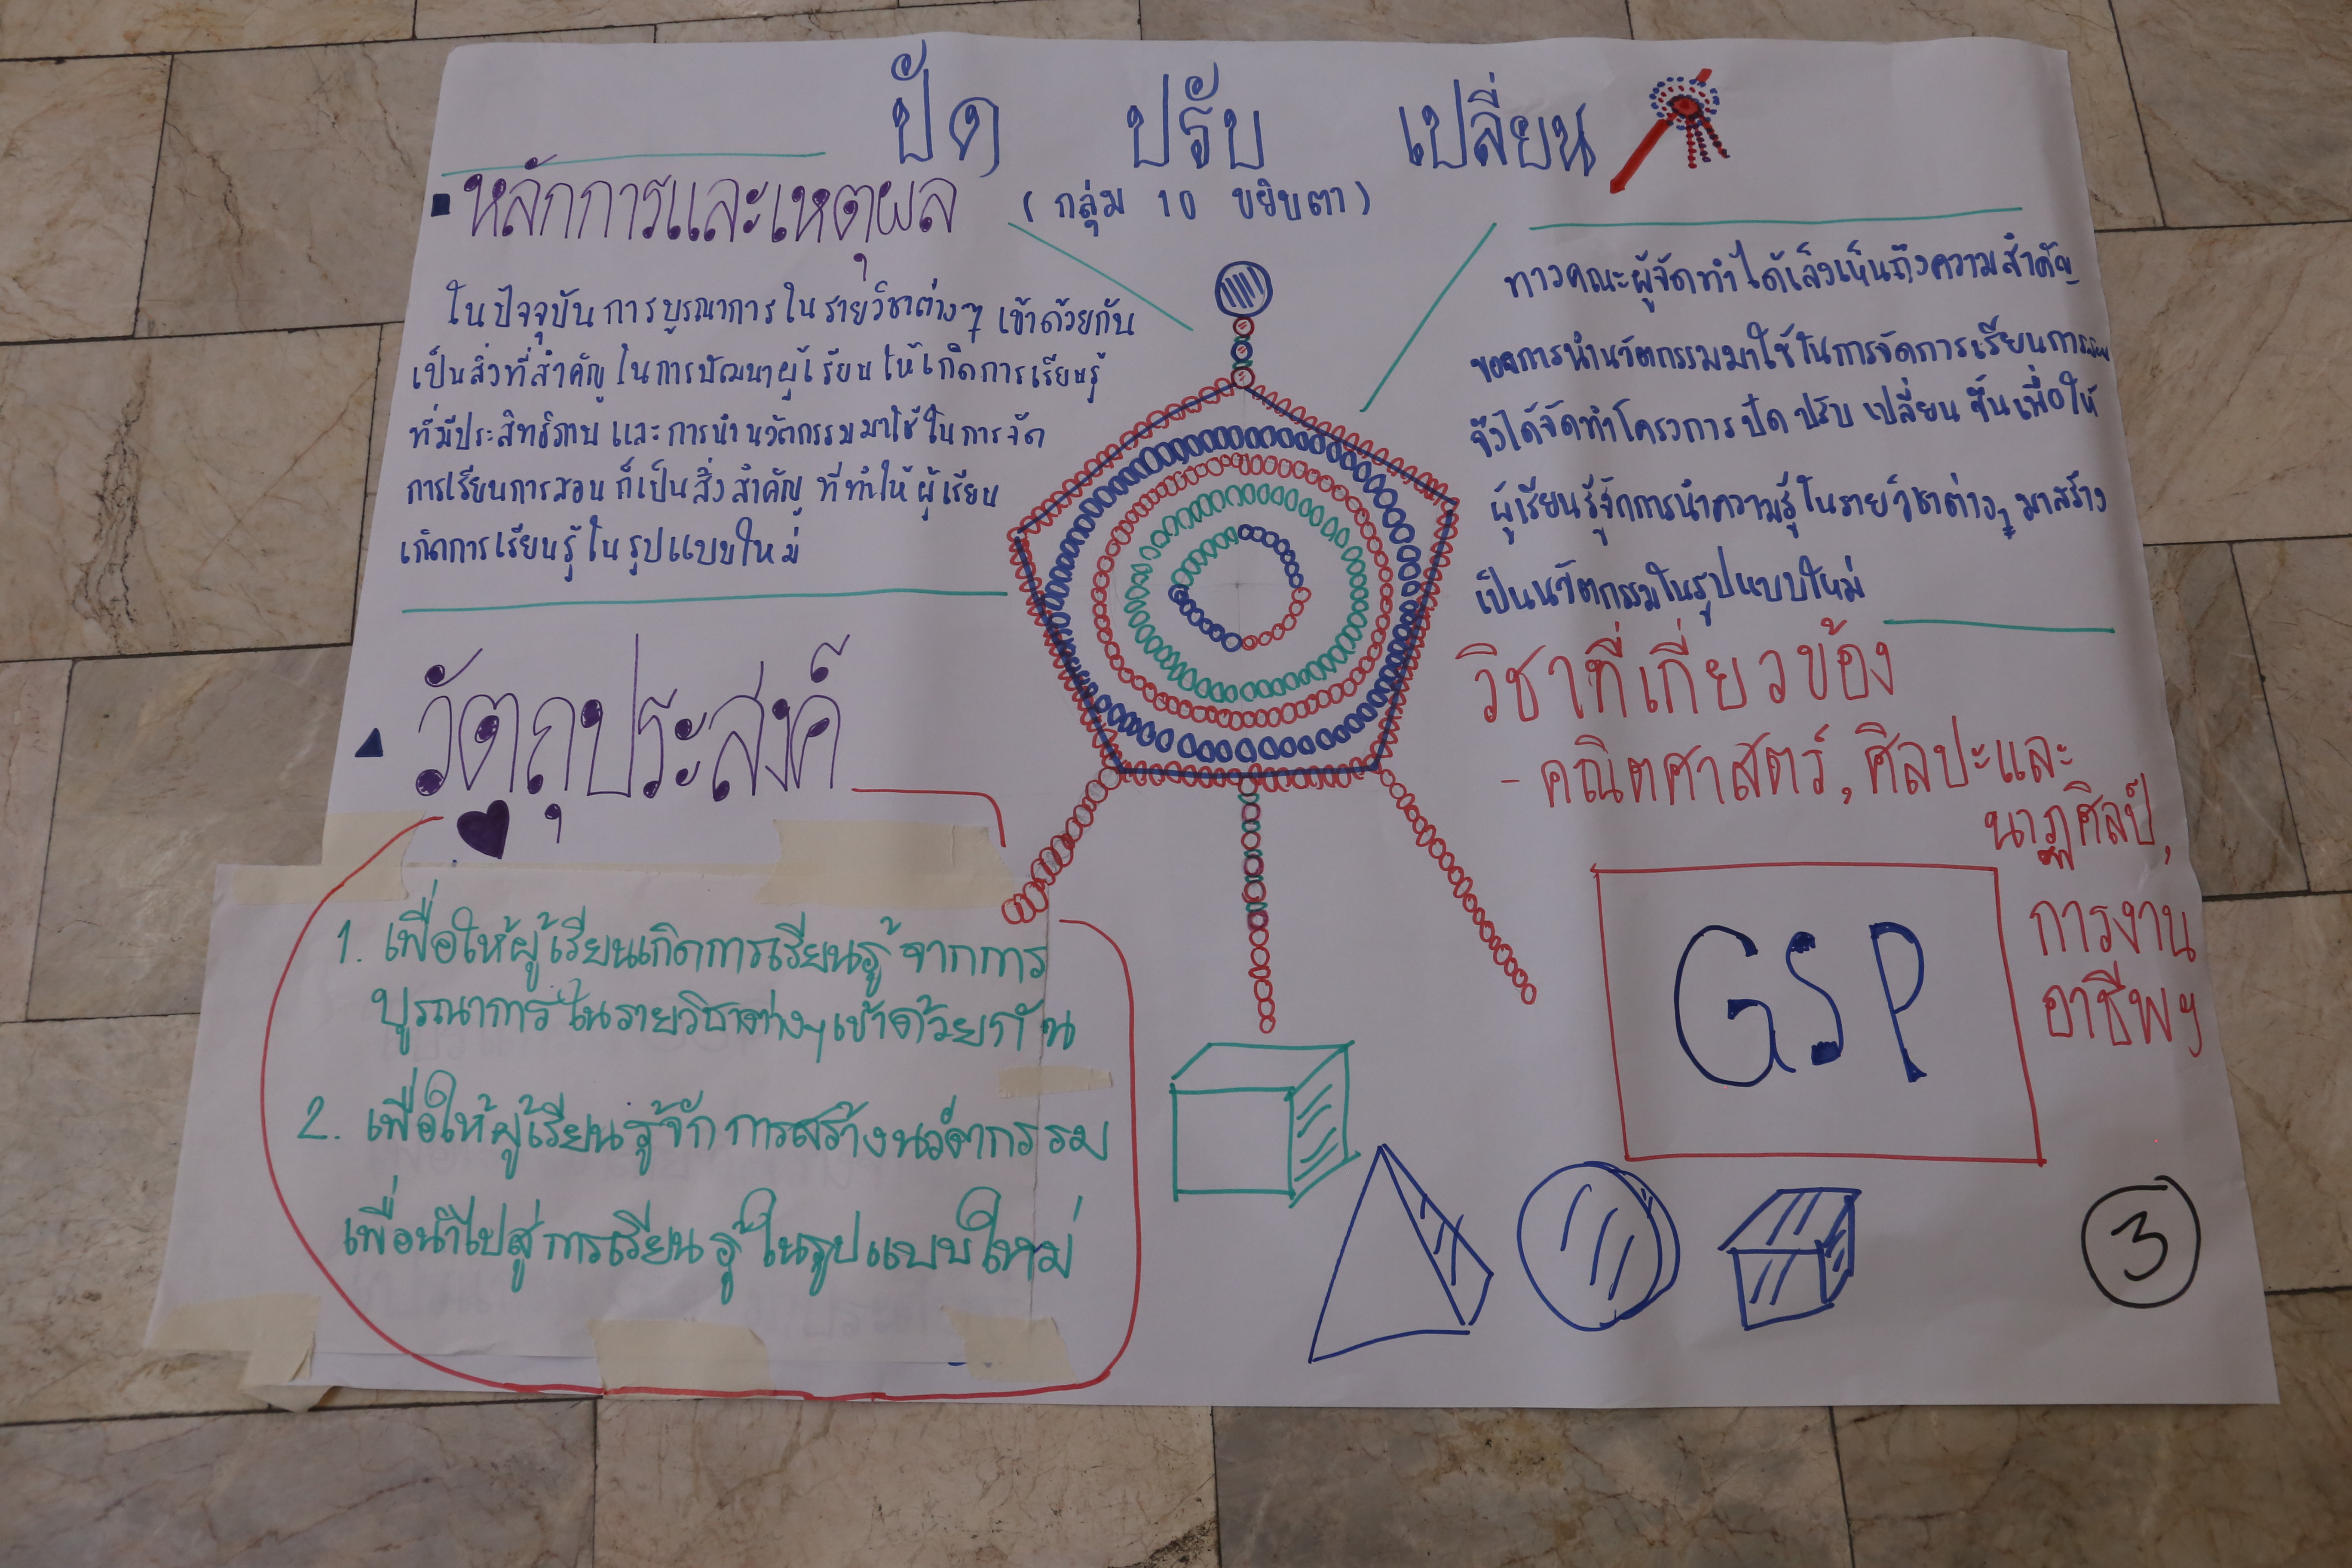 ปัด ปรับ เปลี่ยน
(กลุ่ม 10 ขยิบตา)
หลักการและเหตุผล
ในปัจจุบันการบูรณาการในรายวิชาต่างๆ เข้าด้วยกัน
เป็นสิ่งที่สำคัญในการพัฒนาผู้เรียนให้เกิดการเรียนรู้
ที่มีประสิทธิภาพ และการนำนวัตกรรมมาใช้ในการจัด
การเรียนการสอน ก็เป็นสิ่งสำคัญ ที่ทำให้ผู้เรียน
เกิดการเรียนรู้ในรูปแบบใหม่
ทางคณะผู้จัดทำได้เล็งเห็นถึงความสำคัญ
ของการนำนวัตกรรมมาใช้ในการจัดการเรียนการสอน
จึงได้จัดทำโครงการ ปัด ปรับ เปลี่ยน ขึ้นเพื่อให้
ผู้เรียนรู้จักการนำความรู้ในรายวิชาต่างๆ มาสร้าง
เป็นนวัตกรรมในรูปแบบใหม่
วัตถุประสงค์
1. เพื่อให้ผู้เรียนเกิดการเรียนรู้ จากการ
บูรณาการในรายวิชาต่างๆเข้าด้วยกัน
2. เพื่อให้ผู้เรียนรู้จักการสร้างนวัตกรรม
เพื่อนำไปสู่การเรียนรู้ในรูปแบบใหม่
วิชาที่เกี่ยวข้อง
- คณิตศาสตร์, ศิลปะและ
นาฏศิลป์,
การงาน
อาชีพฯ
GSP
3